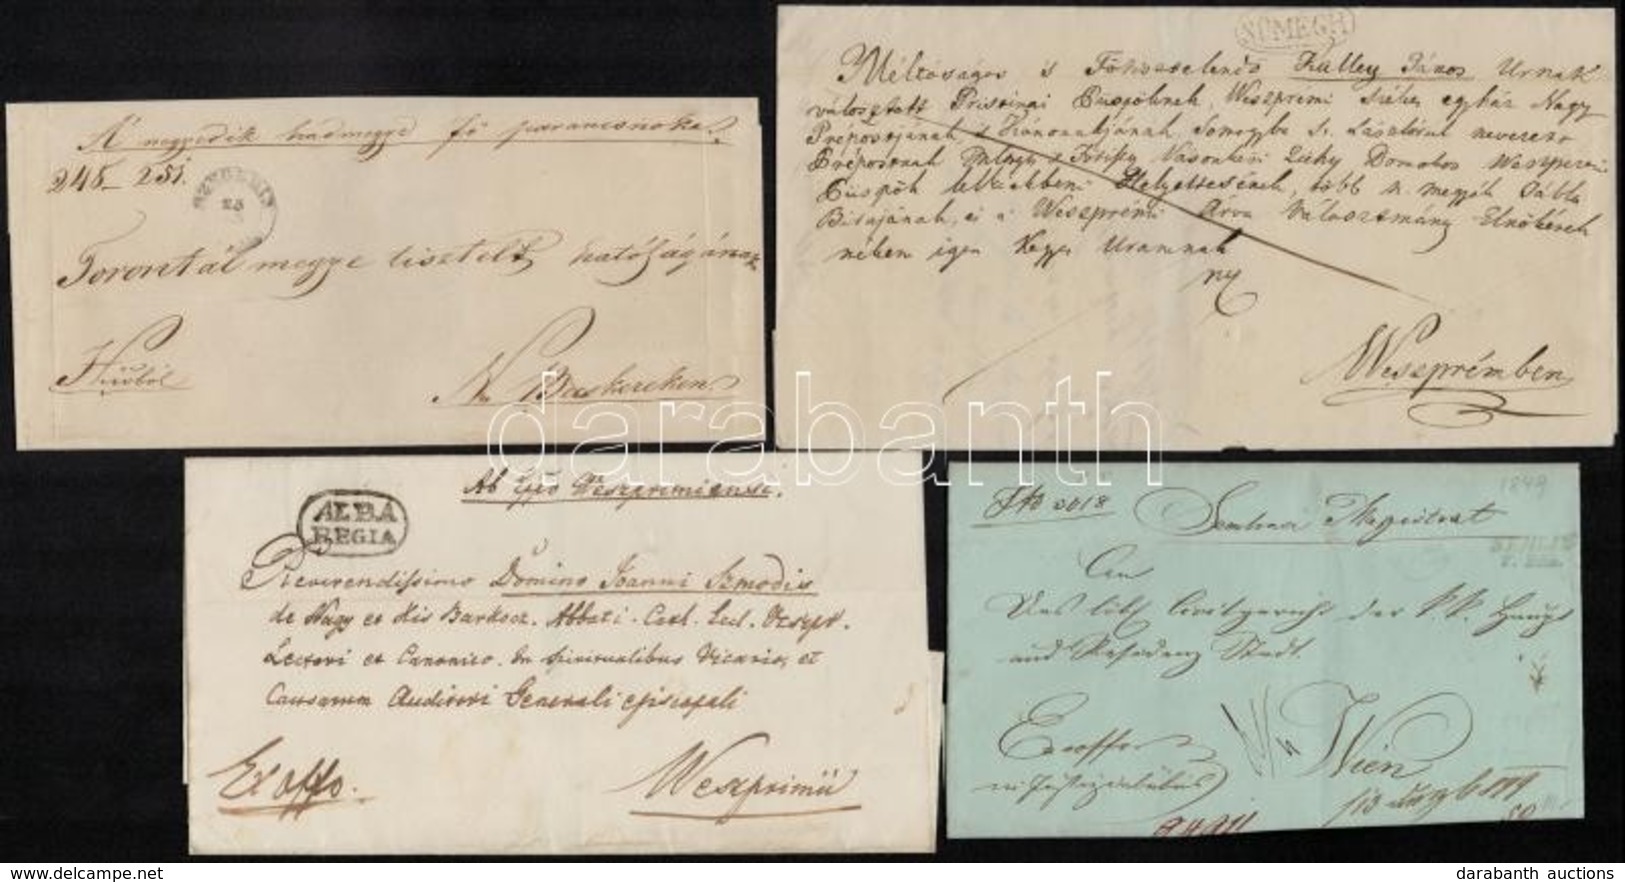 A negyedik hadmegye fő parancsnoka.
248_ 251.
23
Torontál megye tisztelt hatóságának
Hivból
N Becskereken
SÜMEGH
Méltóságos és Főtisztelendő Kulley János Urnak
választott Pristinai Püspöknek, Weszprémi Székes egyház Nagy
Prépostjának és Kánonokjának, Somogyba Sz. Lászlórul nevezett
Prépostnak Méltgs és Főtiszt Vásonkeői Zichy Domokos Weszprémi
Püspök lelkiekbeni Helyettesének, több n. megyék Tábla
Birájának, és a Weszprémi Árva Választmány Elnökének
nékem igen Kegyes Uramnak
Weszprémben
Ab Weszpremiensi.
ALBA
REGIA
Reverendissimo Domino Joanni Szmodis
de Nagy et Kis Barkocz. Abbati. Cath. Eccl. Veszpr.
Lectori et Canonico. In spiritualibus Vicario, et
Causarum Auditori Generali episcopali
Ex offo.
Weszprimii
No 2018
1849
Semliner Magistrat
SEMLIN
An
Das löbl Civilgericht der K. K. Haupt
und Residenz Stadt.
Wien
darabanth
darabanth auctions